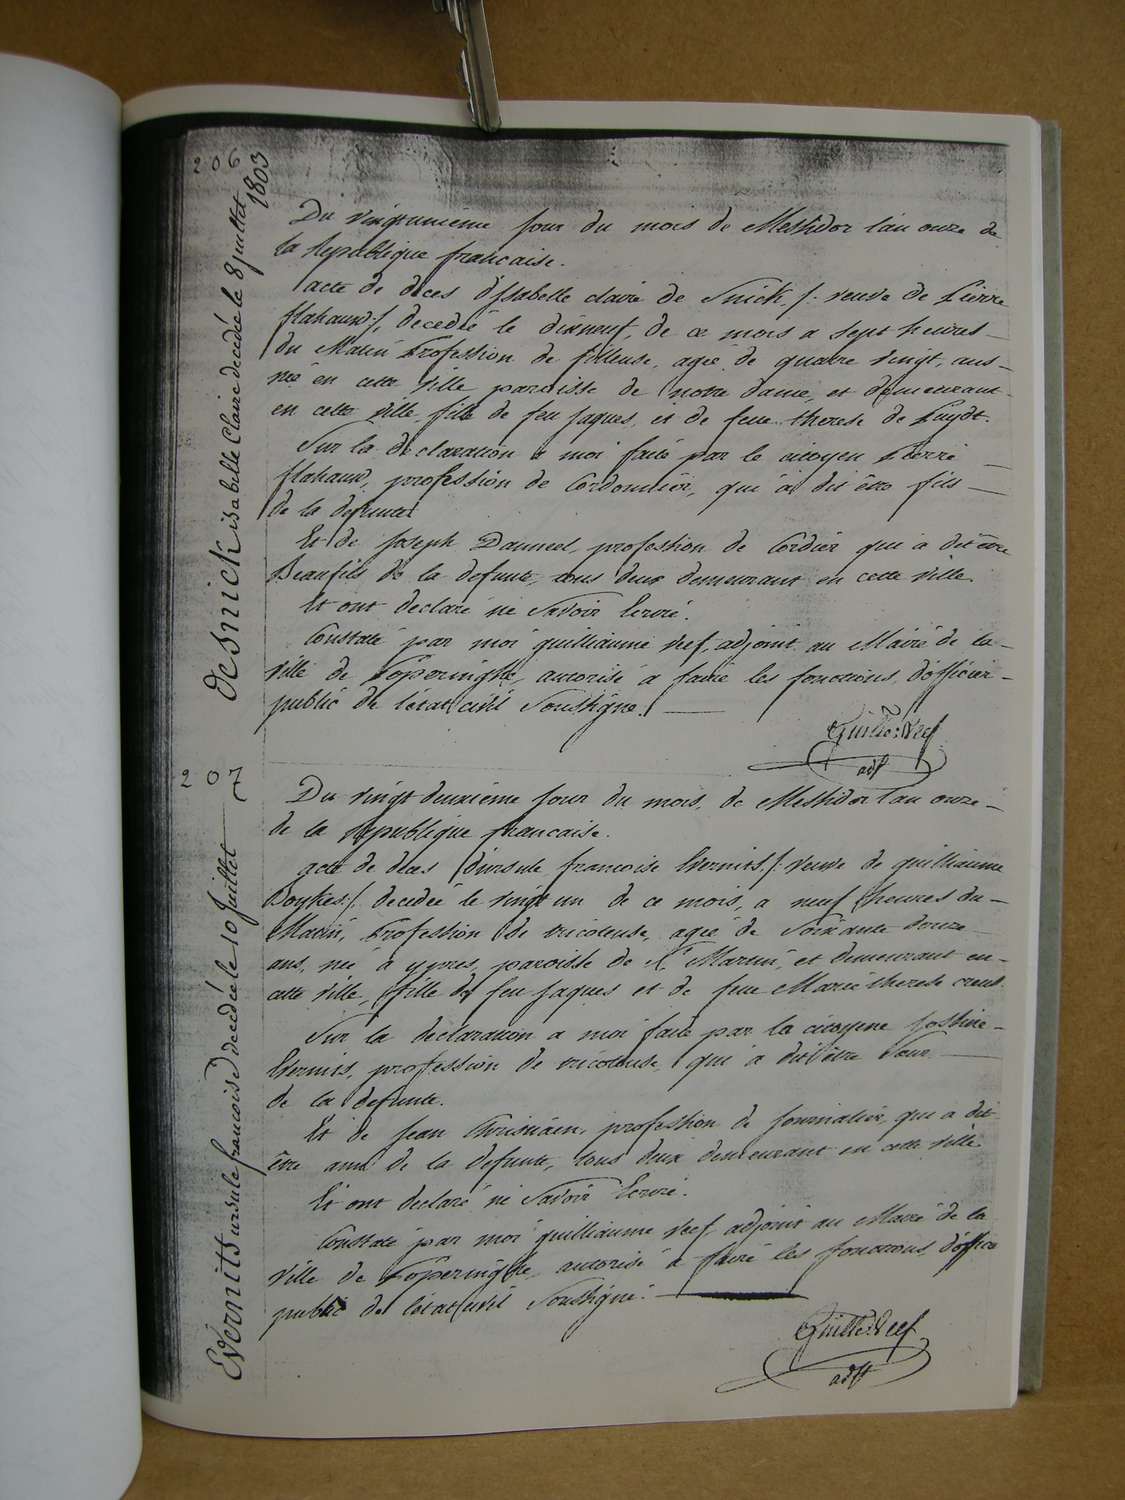 206
1803
desnick isabelle Claire decedée le 8 juillet
Du vingtunieme jour du mois de Messidor l'an onze de
la republique francaise.
acte de deces d'Isabelle claire de Snick, /: veuve de Pierre
flahauw:/, decedée le dixneuf, de ce mois a sept heures
du Matin Profession de fileuse, agée de quatre vingt, ans
née en cette ville paroisse de notre dame, et demeurant
en cette ville, fille de feu jaques, et de feue therese de Puydt.
Sur la declaration a moi faite par le citoyen Pierre
flahauw, profession de Cordonnier, qui a dit être fils
de la defunte
Et de Joseph Dauneel, profession de Cordier qui a dit être
Beaufils de la defunte, tous deux demeurant en cette ville.
Et ont declaré ne Savoir Ecrire.
Constaté par moi guilliaume Neef, adjoint au Maire de la
ville de Poperinghe, autorisé a faire les fonctions, d'officier
public de l'état civil Soussigné.
Guille: Neef
adjt
207
Evernitt ursule francoise decedée le 10 juillet
Du vingt deuxième jour du mois, de Messidor l'an onze
de la republique francaise.
acte de deces d'ursule francoise Evernits /: veuve de guilliaume
Boykes:/ decedée le vingt un de ce mois, a neuf heures du
Matin, Profession de tricoteuse, agée de Soixante douze
ans, née a ypres, paroisse de St Martin, et demeurant en
cette ville, fille de feu jaques et de feue Marie therese
Sur la declaration a moi faite par la citoyene
Evernits, profession de tricoteuse, qui a dit être Sour
de la defunte.
Et de jean Christiaen, profession de journalier, qui a dit
être ami de la defunte, tous deux demeurant en cette ville
Et ont declaré ne Savoir Ecrire.
Constaté par moi guilliaume Neef adjoint au Maire de la
ville de Poperinghe, autorisé a faire les fonctions d'officier
public de l'état civil Soussigné.
Guille: Neef
adjt